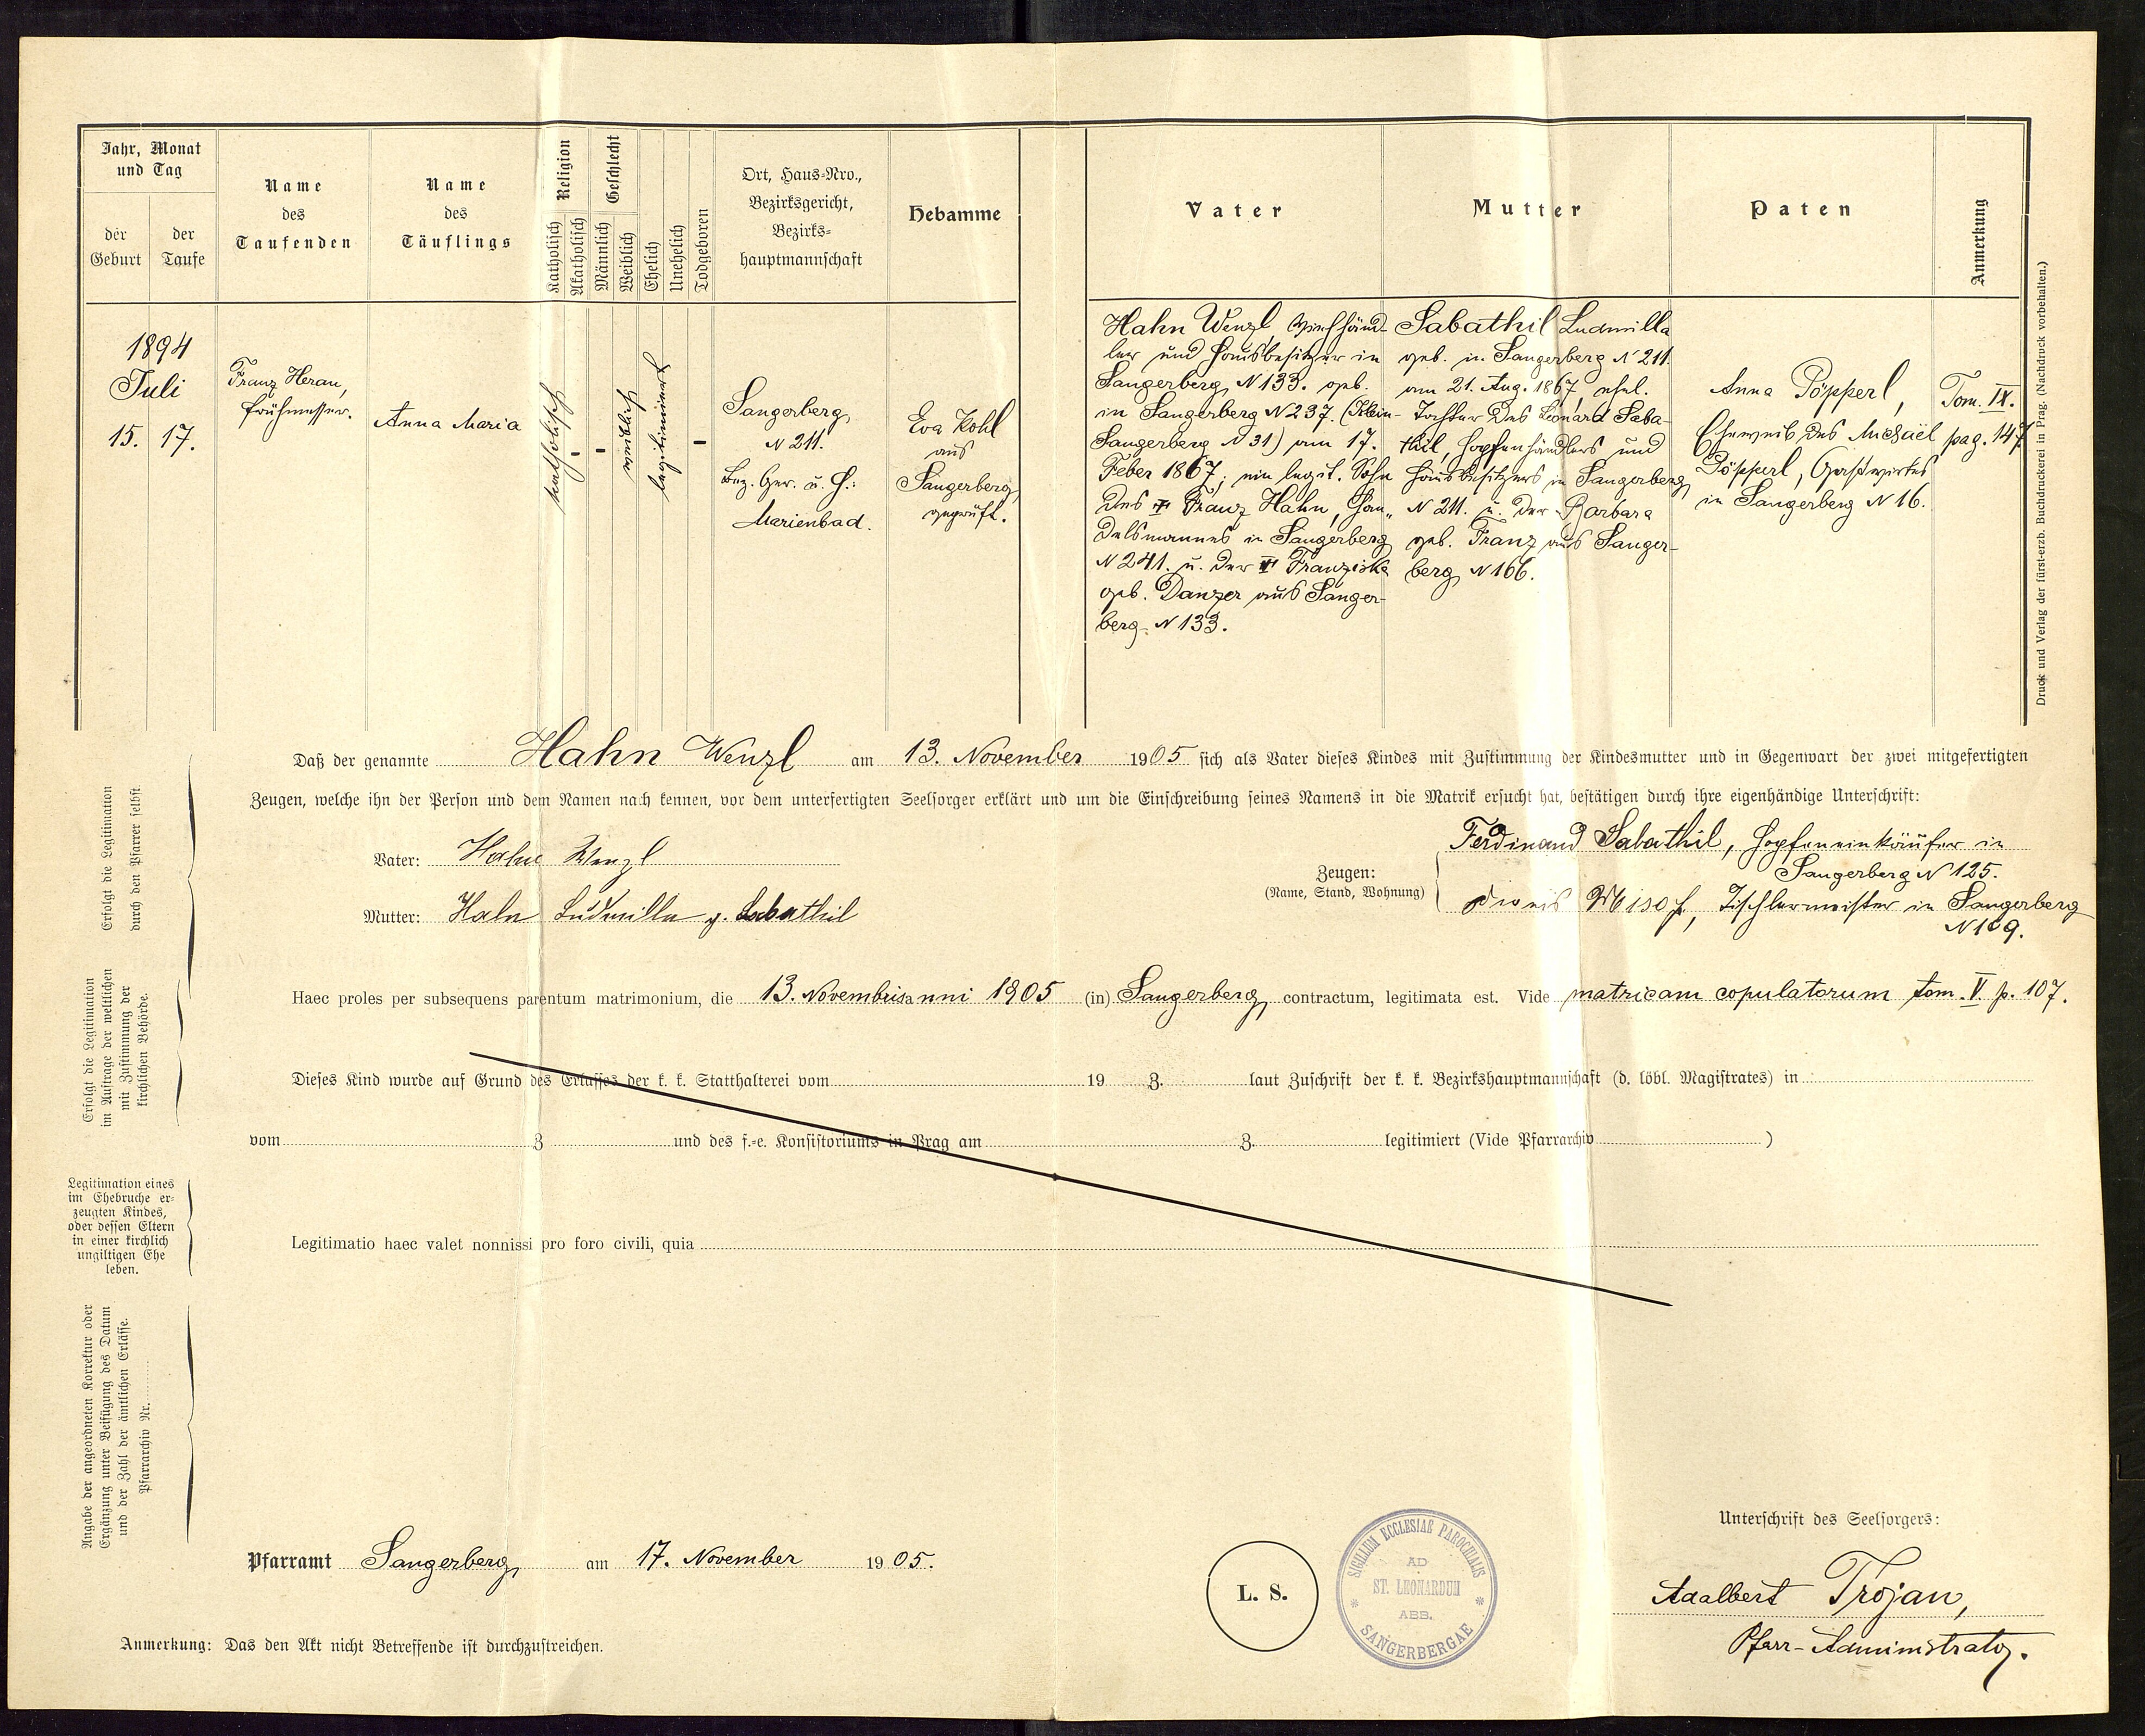 Jahr, Monat
und Tag
der
Geburt
der
Taufe
Name
des
Taufenden
Name
des
Täuflings
Religion
Katholisch
Akatholisch
Geschlecht
Männlich
Weiblich
Ehelich
Unehelich
Todgeboren
Ort, Haus-Nro.,
Bezirksgericht,
Bezirks-
hauptmannschaft
Hebamme
Vater
Mutter
Paten
Anmerkung
1894
Juli
15. 17.
Franz Heran,
Frühmesser.
Anna Maria
katholisch
-
-
weiblich
legitimiert
-
Sangerberg,
N 211.
Bez. Ger. u. H.:
Marienbad.
Eva Kohl
aus
Sangerberg,
geprüft.
Hahn Wenzl, Viehhänd-
ler und Hausbesitzer in
Sangerberg N 133. geb.
in Sangerberg N 237. (Klein-
Sangerberg N 31) am 17.
Feber 1867; ein legit. Sohn
des † Franz Hahn, Han-
delsmannes in Sangerberg
N 241. u. der † Franziska
geb. Danzer aus Sanger-
berg N 133.
Sabathil Ludmilla
geb. in Sangerberg N 211.
am 21. Aug. 1867, ehel.
Tochter des Leonard Saba-
thil, Hopfenhändlers und
Hausbesitzers in Sangerberg
N 211. u. der Barbara
geb. Franz aus Sanger-
berg N 166.
Anna Pöpperl,
Eheweib des Michael
Pöpperl, Gastwirtes
in Sangerberg N 16.
Tom. IX.
pag. 147
Druck und Verlag der fürst-erzb. Buchdruckerei in Prag. (Nachdruck vorbehalten.)
Erfolgt die Legitimation
durch den Pfarrer selbst.
Daß der genannte Hahn Wenzl am 13. November 1905 sich als Vater dieses Kindes mit Zustimmung der Kindesmutter und in Gegenwart der zwei mitgefertigten
Zeugen, welche ihn der Person und dem Namen nach kennen, vor dem unterfertigten Seelsorger erklärt und um die Einschreibung seines Namens in die Matrik ersucht hat, bestätigen durch ihre eigenhändige Unterschrift:
Vater: Hahn Wenzl
Mutter: Hahn Ludmilla g. Sabathil
Zeugen:
(Name, Stand, Wohnung)
Ferdinand Sabathil, Hopfeneinkäufer in
Sangerberg N 125.
Dionis, Tischlermeister in Sangerberg
N 109.
Haec proles per subsequens parentum matrimonium, die 13. Novembris anni 1905 (in) Sangerberg contractum, legitimata est. Vide matricam copulatorum tom. V. p. 107.
Erfolgt die Legitimation
im Auftrage der weltlichen
mit Zustimmung der
kirchlichen Behörde.
Dieses Kind wurde auf Grund des Erlasses der k. k. Statthalterei vom 19 Z. laut Zuschrift der k. k. Bezirkshauptmannschaft (d. löbl. Magistrates) in
vom Z und des f.-e. Konsistoriums in Prag am Z. legitimiert (Vide Pfarrarchiv )
Legitimation eines
im Ehebruche er-
zeugten Kindes,
oder dessen Eltern
in einer kirchlich
ungiltigen Ehe
leben.
Legitimatio haec valet nonnissi pro foro civili, quia
Angabe der angeordneten Korrektur oder
Ergänzung unter Beifügung des Datum
und der Zahl der ämtlichen Erlässe.
Pfarrarchiv Nr.
Pfarramt Sangerberg, am 17. November 1905.
L. S.
SIGILLUM ECCLESIAE PAROCHIALIS
AD
ST. LEONARDUM
ABB.
SANGERBERGAE
Unterschrift des Seelsorgers:
Adalbert Trojan,
Pfarr-Administrator.
Anmerkung: Das den Akt nicht Betreffende ist durchzustreichen.